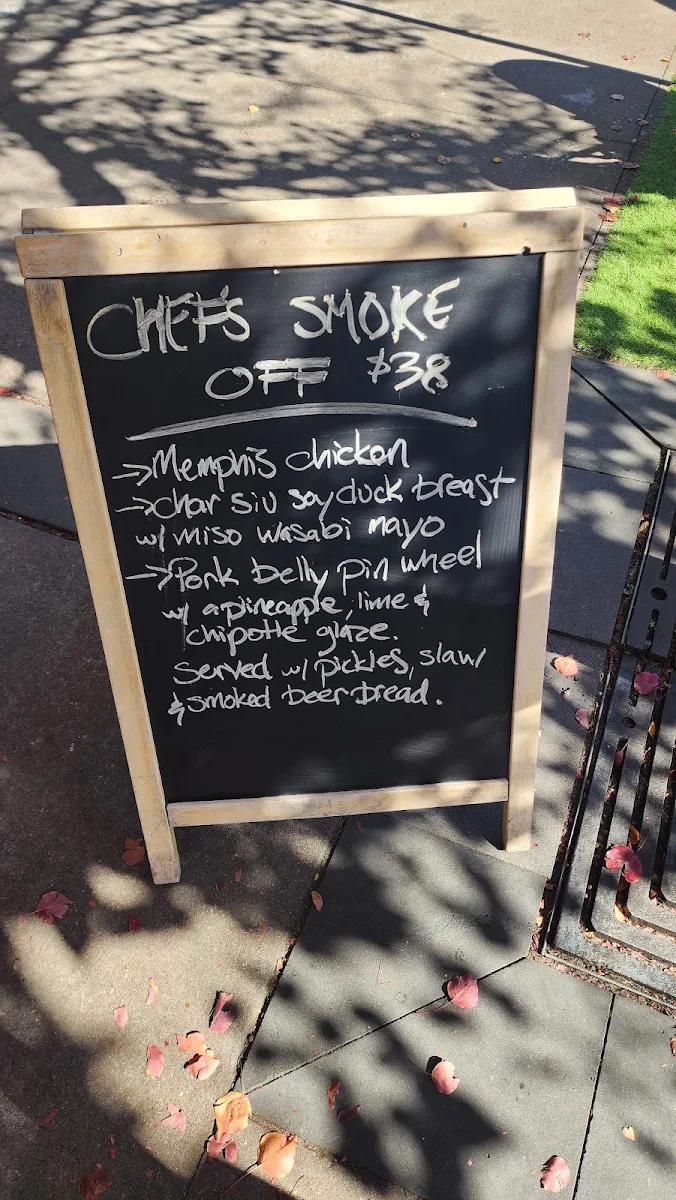 CHEF'S SMOKE
OFF $38
→Memphis chicken
→char siu soy duck breast
w/ miso wasabi mayo
→Pork belly pin wheel
w/ a pineapple, lime &
chipotle glaze.
served w/ pickles, slaw
& smoked beer bread.